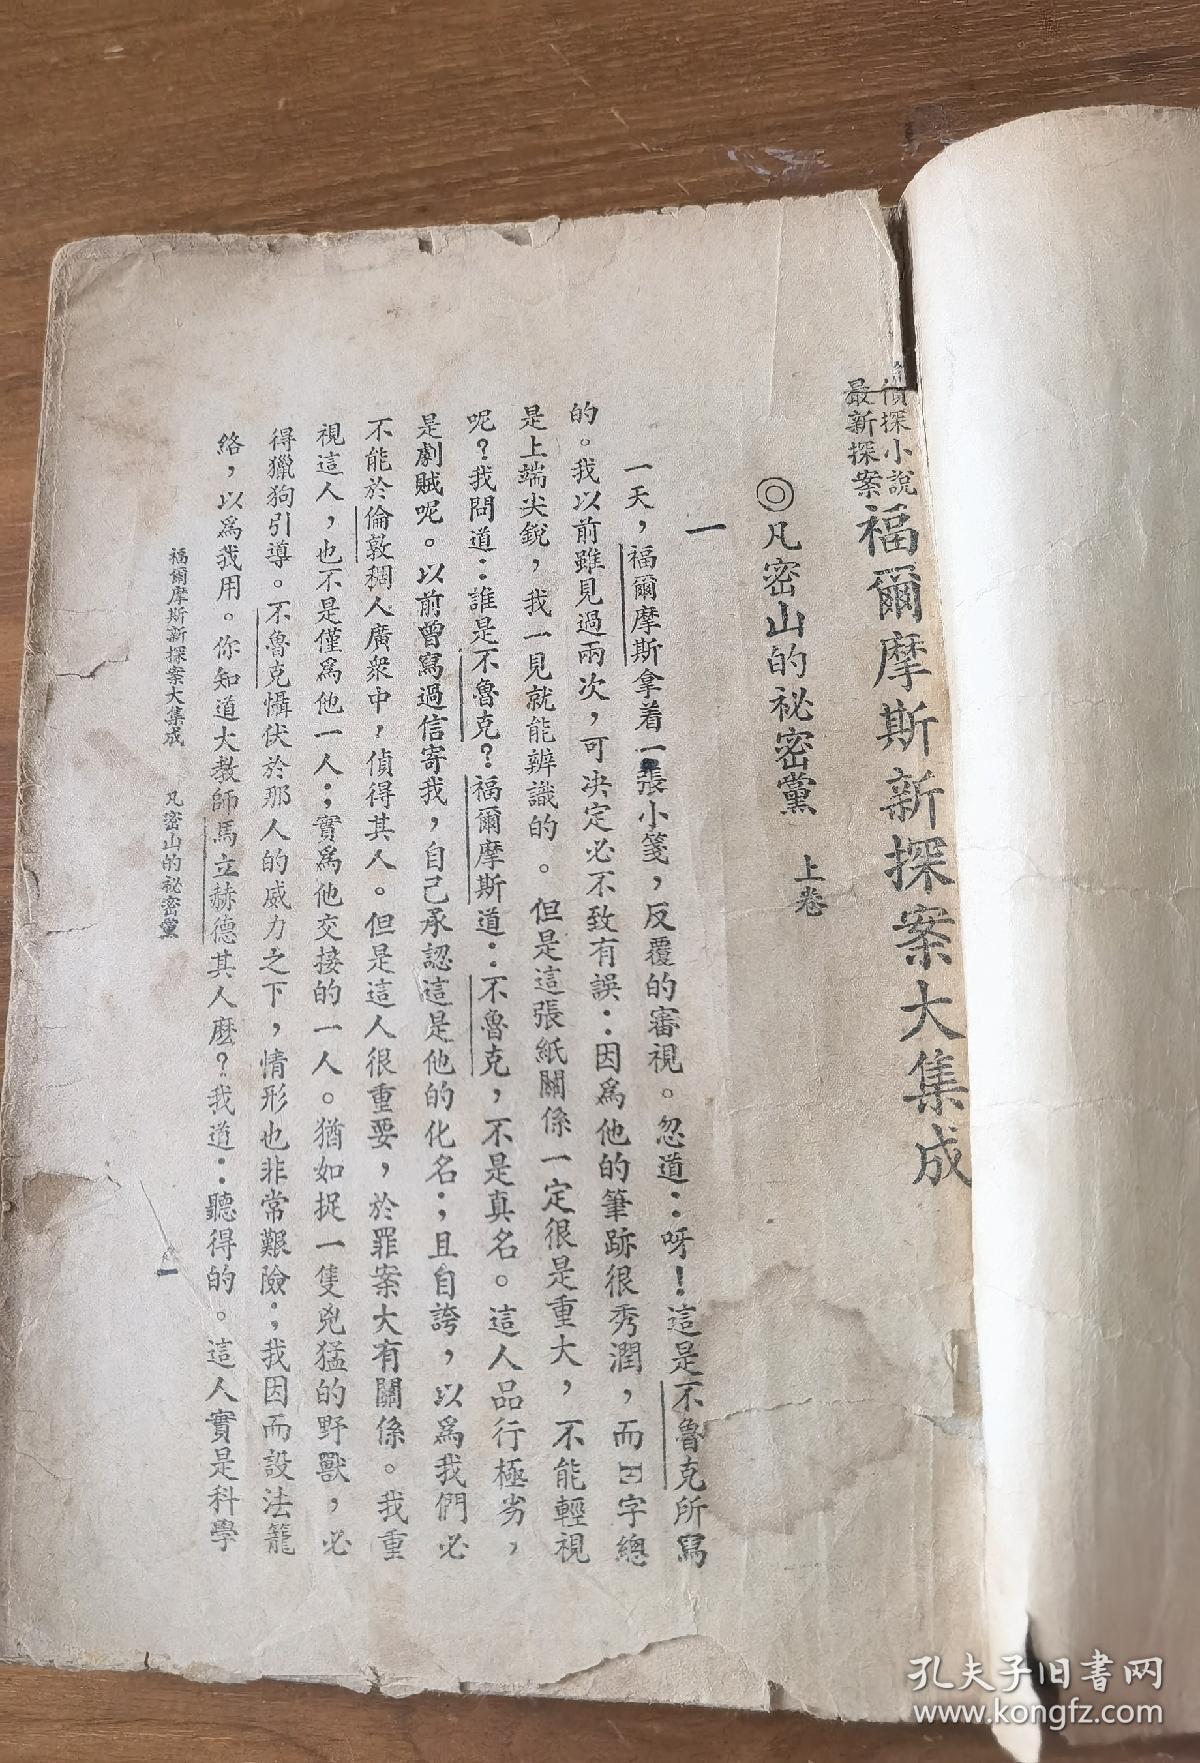 偵探小說
最新探案
福爾摩斯新探案大集成
◎凡密山的祕密黨 上卷
一
一天，福爾摩斯拿着一張小箋，反覆的審視。忽道：呀！這是不魯克所寫
的。我以前雖見過兩次，可决定必不致有誤：因爲他的筆跡很秀潤，而E字總
是上端尖銳，我一見就能辨識的。但是這張紙關係一定很是重大，不能輕視
呢？我問道：誰是不魯克？福爾摩斯道：不魯克，不是真名。這人品行極劣，
是劇賊呢。以前曾寫過信寄我，自己承認這是他的化名；且自誇，以爲我們必
不能於倫敦稠人廣衆中，偵得其人。但是這人很重要，於罪案大有關係。我重
視這人，也不是僅爲他一人；實爲他交接的一人。猶如捉一隻兇猛的野獸，必
得獵狗引導。不魯克懾伏於那人的威力之下，情形也非常艱險；我因而設法籠
絡，以爲我用。你知道大教師馬立赫德其人麽？我道：聽得的。這人實是科學
福爾摩斯新探案大集成 凡密山的祕密黨
一
孔夫子旧书网
www.kongfz.com